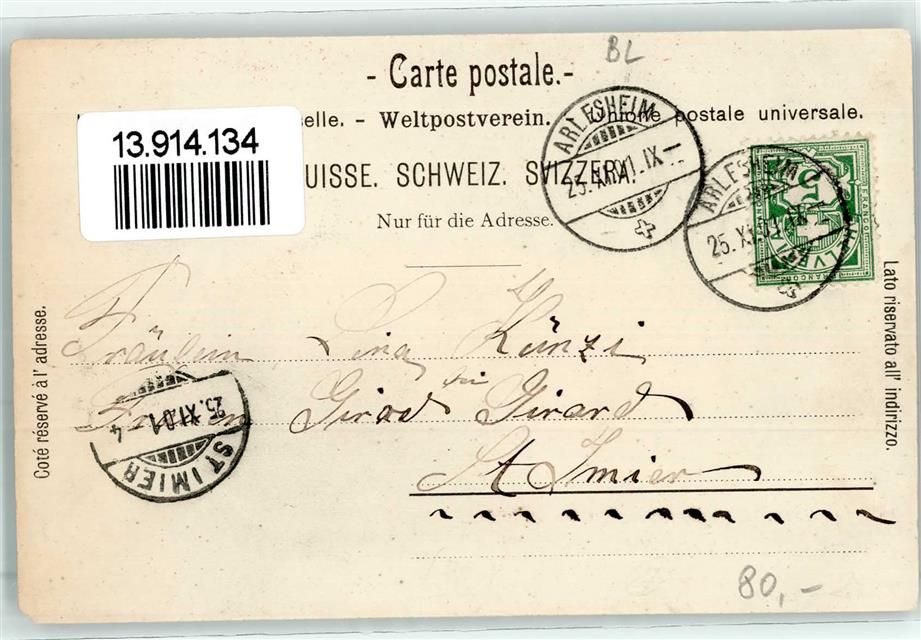 BL
- Carte postale. -
selle. - Weltpostverein. - Unione postale universale.
13.914.134
UISSE. SCHWEIZ. SVIZZERA.
Nur für die Adresse.
ARLESHEIM
25.XI.01.IX-
ARLESHEIM
25.XI.01.IX
5
HELVETIA
FRANCO
Coté réservé à l'adresse.
Lato riservato all'indirizzo.
Fräulein Lina Künzi
bei
Girod Girard
St Imier
25.XI.01-4
ST IMIER
80,-